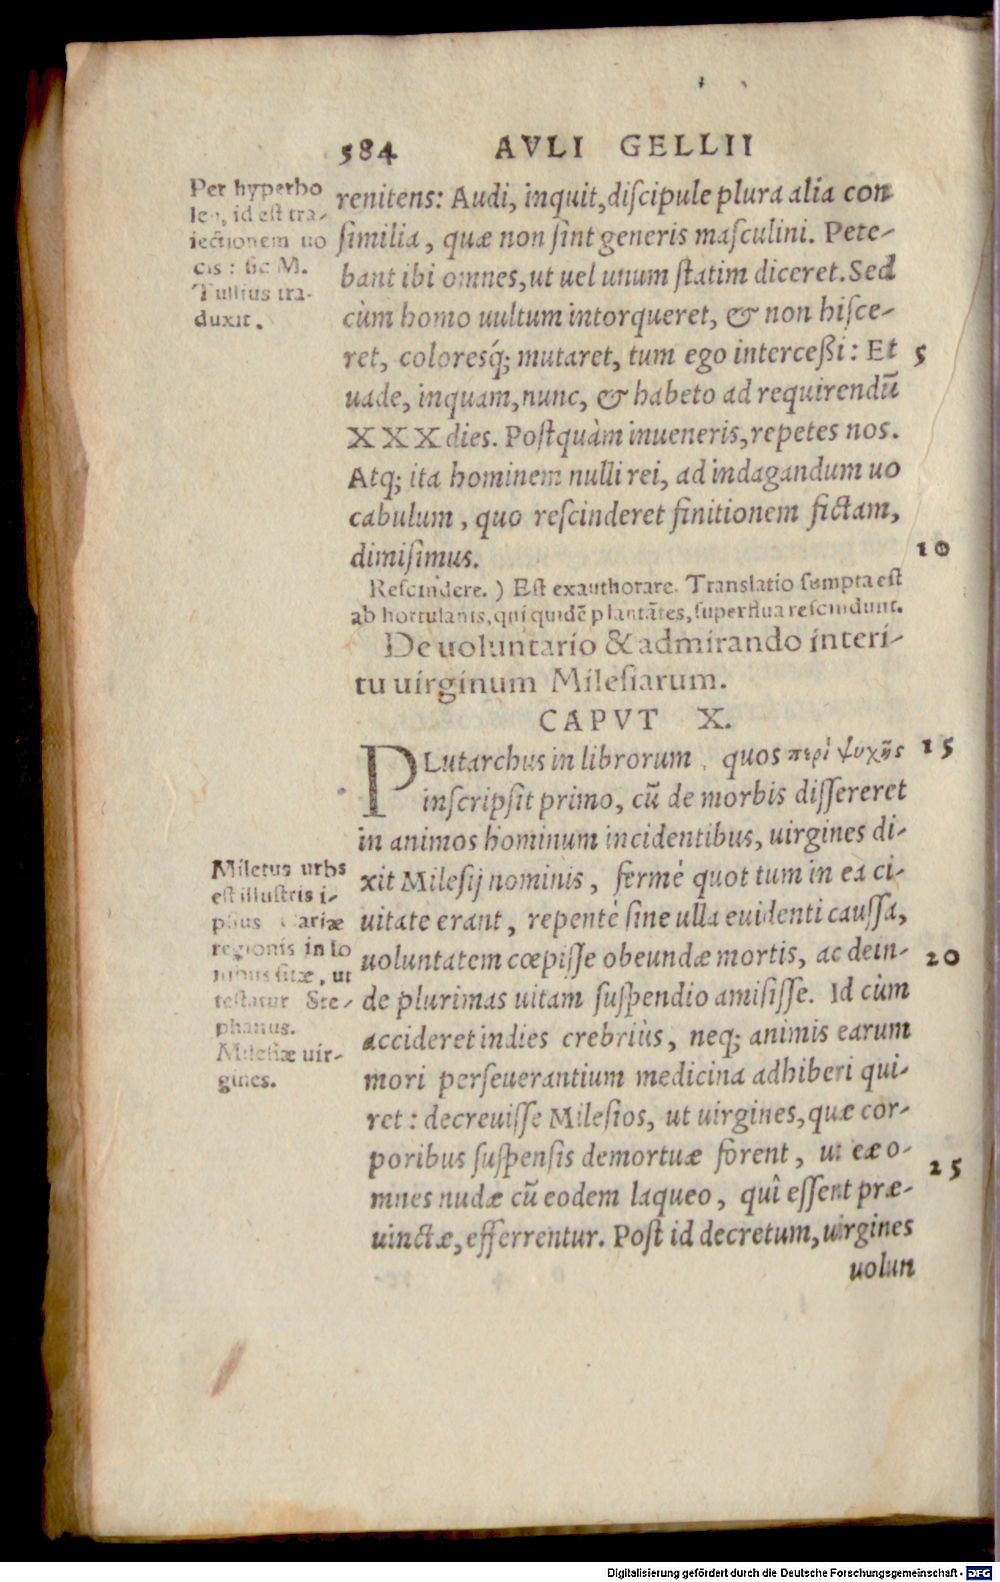 584 AVLI GELLII
Per hyperbo
len, id est tra-
iectionem uo
cis: sic M.
Tullius tra-
duxit.
renitens: Audi, inquit, discipule plura alia con
similia, quæ non sint generis masculini. Pete-
bant ibi omnes, ut uel unum statim diceret. Sed
cùm homo uultum intorqueret, & non hisce-
ret, coloresq́; mutaret, tum ego interceßi: Et 5
uade, inquam, nunc, & habeto ad requirendũ
XXX dies. Postquàm inueneris, repetes nos.
Atq; ita hominem nulli rei, ad indagandum uo
cabulum, quo rescinderet finitionem fictam,
dimisimus. 10
Rescindere.) Est exauthorare. Translatio sumpta est
ab hortulanis, qui quidẽ plantãtes, superflua rescindunt.
De uoluntario & admirando interi-
tu uirginum Milesiarum.
CAPVT X.
PLutarchus in librorum, quos περὶ ψυχῆς 15
inscripsit primo, cũ de morbis dissereret
in animos hominum incidentibus, uirgines di-
xit Milesij nominis, fermè quot tum in ea ci-
uitate erant, repentè sine ulla euidenti caussa,
uoluntatem cœpisse obeundæ mortis, ac dein- 20
de plurimas uitam suspendio amisisse. Id cùm
accideret indies crebriùs, neq; animis earum
mori perseuerantium medicina adhiberi qui-
ret: decreuisse Milesios, ut uirgines, quæ cor-
poribus suspensis demortuæ forent, ut eæ o- 25
mnes nudæ cũ eodem laqueo, quî essent præ-
uinctæ, efferrentur. Post id decretum, uirgines
uolun
Miletus urbs
est illustris i-
psius Cariæ
regionis in Io
nibus sitæ, ut
testatur Ste-
phanus.
Milesiæ uir-
gines.
Digitalisierung gefördert durch die Deutsche Forschungsgemeinschaft - DFG